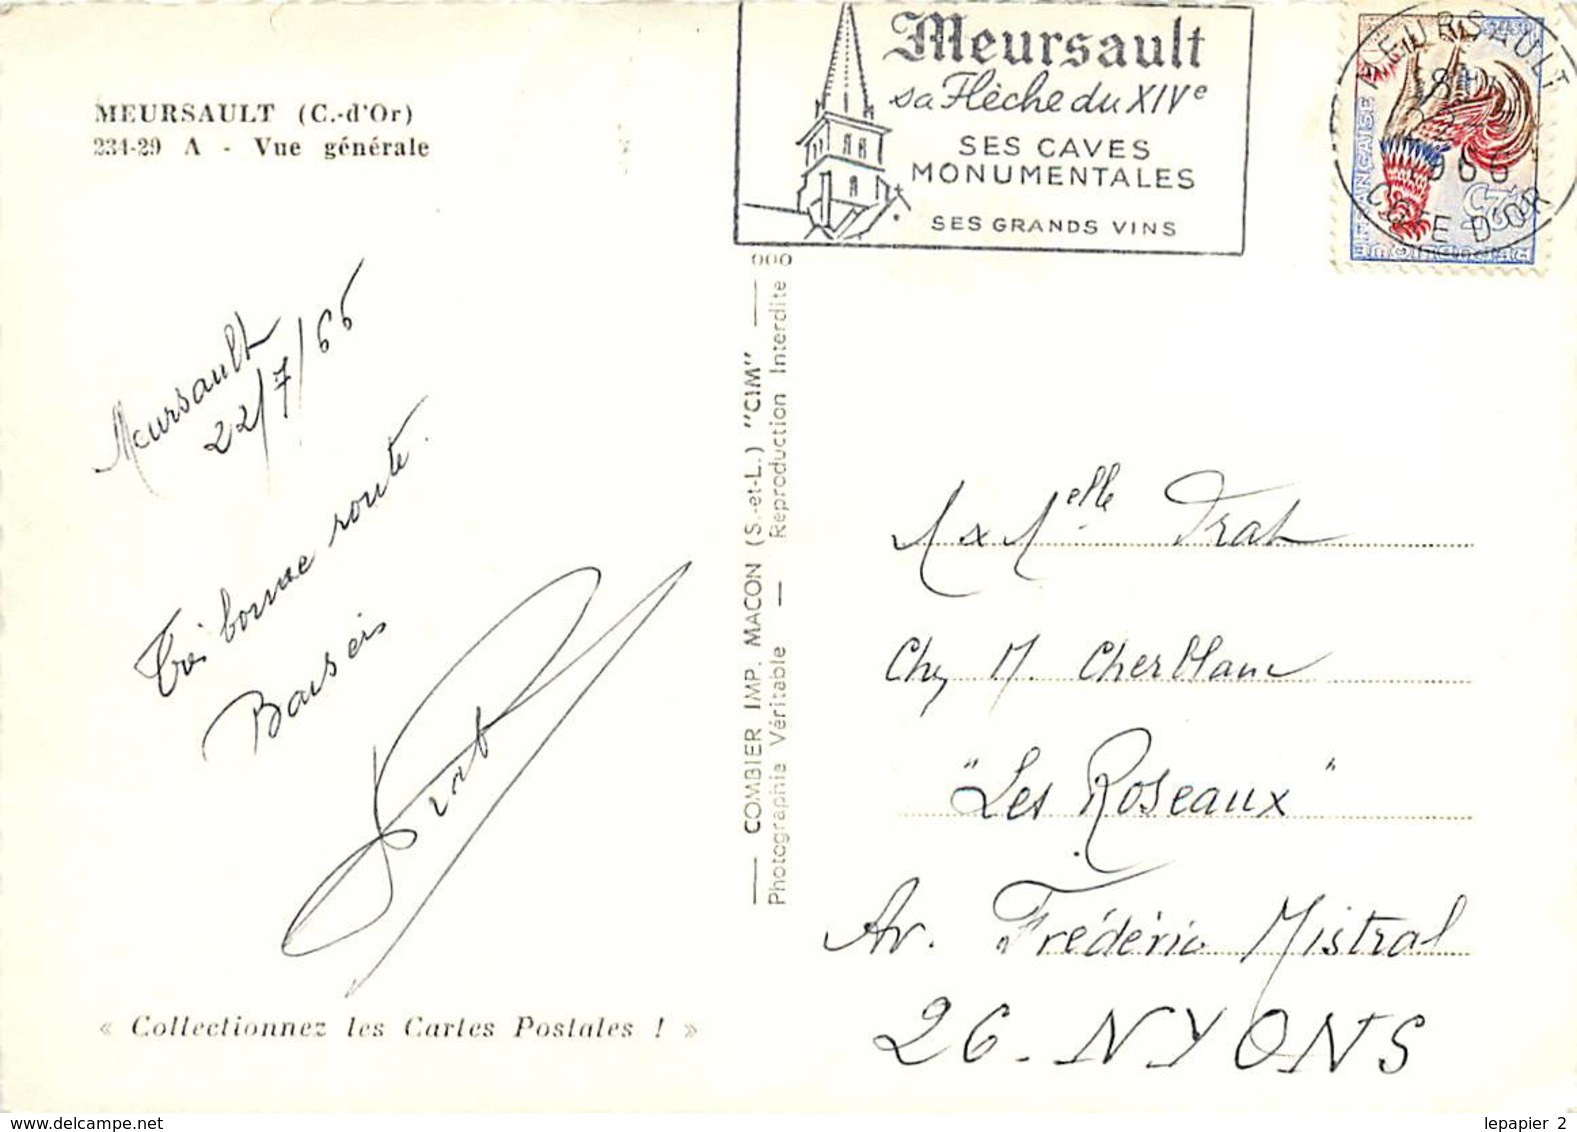 MEURSAULT (C.-d'Or)
234-29 A - Vue générale
Meursault
sa Flèche du XIVe
SES CAVES
MONUMENTALES
SES GRANDS VINS
MEURSAULT
22-7
1966
COTE D'OR
FRANÇAISE
Meursault
22/7/66
Très bonne route.
COMBIER IMP. MACON (S.-et-L.) "CIM"
Photographie Véritable — Reproduction Interdite
000
Chez M. Cherblanc
"Les Roseaux"
Av. Frédéric Mistral
26 - NYONS
« Collectionnez les Cartes Postales ! »
www.delcampe.net
lepapier_2